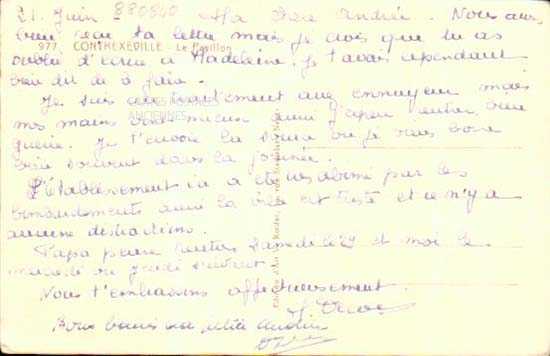 21. Juin 880840 Ma chère Andrée. Nous avons
bien reçu ta lettre mais je vois que tu as
977. CONTREXÉVILLE - Le Pavillon
oublié d'écrire à Madeleine. Je t'avais cependant
bien dit de le faire.
Je suis un traitement assez ennuyeux mais
CARTES POSTALES
ANCIENNES
mes mains vont mieux aussi j'espère rentrer bien
guérie. Je t'envoie la source où je vais boire
bien souvent dans la journée.
L'Établissement ici a été très abîmé par les
bombardements aussi la ville est triste et il n'y a
aucune distractions.
Papa pense rentrer samedi le 29 et moi le
mercredi ou jeudi suivant.
Nous t'embrassons affectueusement
Bons baisers ma petite